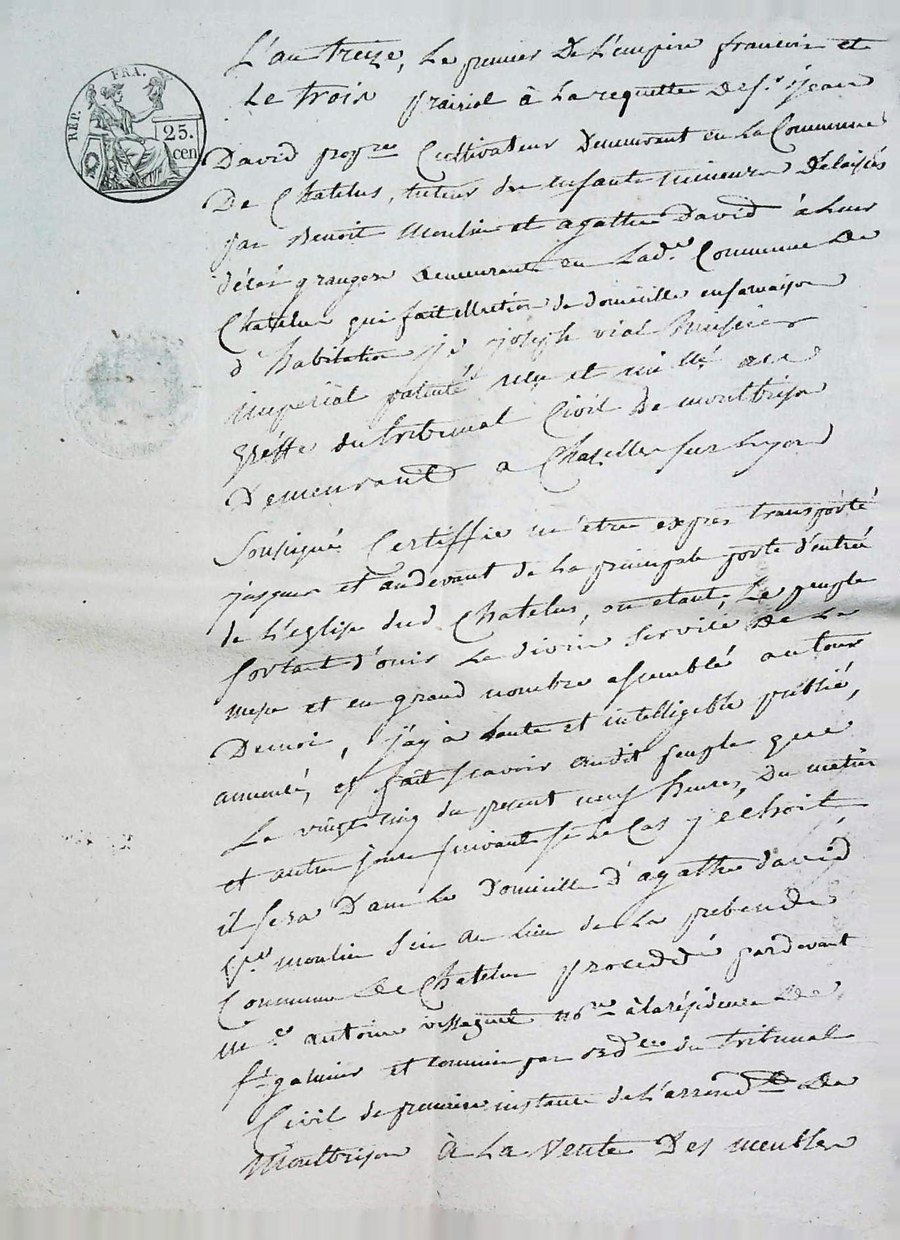 REP. FRA.
25.
cen
L'an treize, Le premier De L'empire francois et
Le trois prairial à La requette De Sr. Jean
David propre Cultivateur Demeurant en La Commune
De Chatelus, tuteur des enfants mineurs Delaissés
par Benoit Moulin et agathe David à Leur
décés grangers demeurants en Lade. Commune de
Chatelus qui fait Election de domicille en sa maison
d'habitation je joseph vial huissier
imperial patenté reçu et au
Greffe du tribunal Civil De montbrison
Demeurant a Chazelle sur Lyon
Soussigné Certiffie m'être expres transporté
jusques et audevant de La principale porte d'entrée
de L'eglise dud Chatelus, ou etant, Le peuple
sortant d'ouir Le divin Service De La
messe et en grand nombre assemblé autour
De moi, j'ay à haute et intelligible publié,
annoncé, et fait scavoir audit peuple que
Le vingt cinq du present neuf heures, Du matin
et autres jours suivants si Le Cas y echoit
il sera Dans Le Domicille d'agathe david
Vve moulin Sis au Lieu de La prebende
Commune de Chatelus procédé pardevant
me. antoine nore à la résidence de
st galmier et commis par du tribunal
Civil de premiere instance de L'arrondt De
Montbrison à La Vente Des meubles